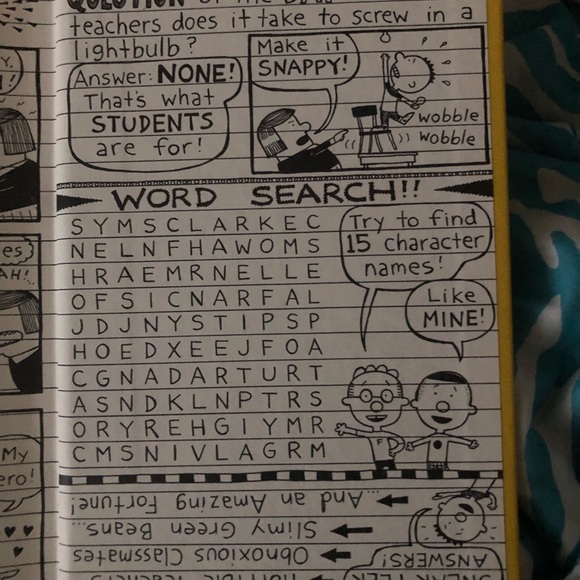 QUESTION of the
teachers does it take to screw in a
lightbulb?
Answer: NONE!
That's what
STUDENTS
are for!
Make it
SNAPPY!
wobble
wobble
WORD SEARCH!!
S Y M S C L A R K E C
N E L N F H A W O M S
H R A E M R N E L L E
O F S I C N A R F A L
J D J N Y S T I P S P
H O E D X E E J F O A
C G N A D A R T U R T
A S N D K L N P T R S
O R Y R E H G I Y M R
C M S N I V L A G R M
Try to find
15 character
names!
Like
MINE!
es
AH!
My
ero!
...And an Amazing Fortune!
Slimy Green Beans...
Obnoxious Classmates
ANSWERS!